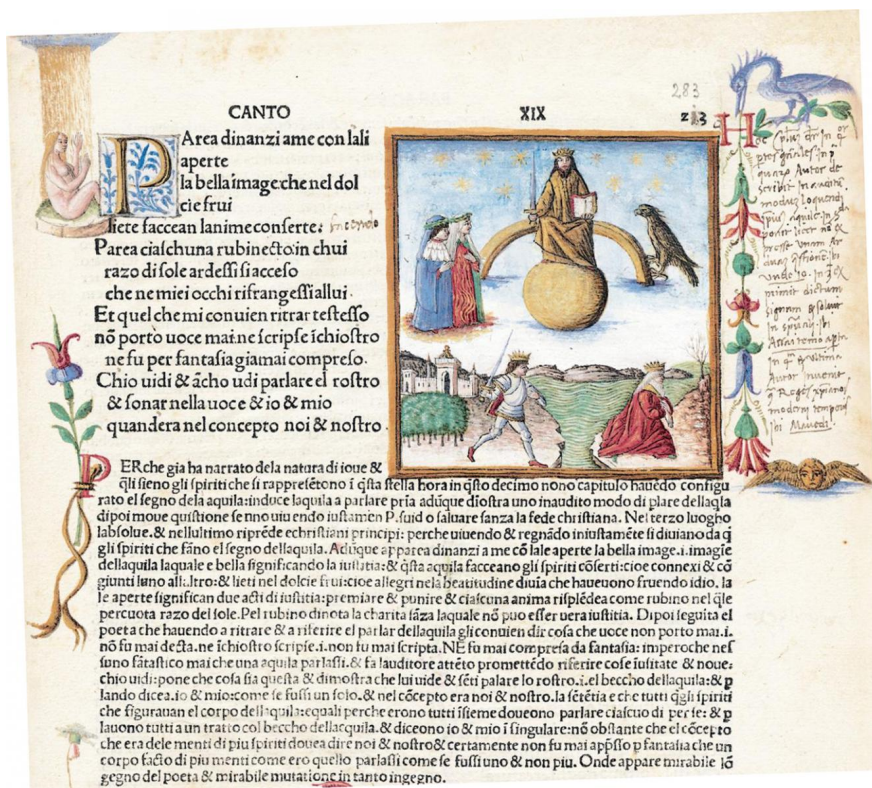 283
CANTO XIX
z 3
PArea dinanzi ame con lali
aperte
la bella image:che nel dol
cie frui
liete faccean lanime conserte:
Parea ciaschuna rubinecto:in chui
razo di sole ardessi si acceso
che ne miei occhi rifrangessi allui.
Et quel che mi conuien ritrar testesso
nõ porto uoce mai:ne scripse ĩchiostro
ne fu per fantasia giamai compreso.
Chio uidi & ãcho udi parlare el rostro
& sonar nella uoce & io & mio
quandera nel concepto noi & nostro.
PERche gia ha narrato dela natura di ioue &
q̃li sieno gli spiriti che si rappresẽtono ĩ q̃sta stella hora in q̃sto decimo nono capitulo hauẽdo configu
rato el segno dela aquila:induce laquila a parlare
dipoi moue quistione se uno uiuendo iustamen
labsolue.& nellultimo riprẽde echristiani principi: perche uiuendo & regnãdo iniustamẽte si diuiano da q̃
gli spiriti che fãno el segno dellaquila. Adũque apparea dinanzi a me cõ lale aperte la bella image.i.imagie
dellaquila laquale e bella significando la iustitia:& q̃sta aquila facceano gli spiriti cõserti:cioe connexi & cõ
giunti luno allaltro:& lieti nel dolcie frui:cioe allegri nela beatitudine diuina che haueuono fruendo idio. la
le aperte significan due acti di iustitia:premiare & punire & ciascuna anima risplẽdea come rubino nel q̃le
percuota razo del sole.Pel rubino dinota la charita sãza laquale nõ puo esser uera iustitia. Dipoi seguita el
poeta che hauendo a ritrare & a riferire el parlar dellaquila gli conuien dir cosa che uoce non porto mai.i.
nõ fu mai decta.ne ĩchiostro scripse.i.non fu mai scripta.NE fu mai compresa da fantasia: imperoche nes
suno fãtastico mai che una aquila parlassi.& fa lauditore attẽto promettẽdo riferire cose iusitate & noue:
chio uidi:pone che cosa sia questa & dimostra che lui uide & sẽti palare lo rostro.i.el beccho dellaquila:& p
lando dicea.io & mio:come se fussi un solo.& nel cõcepto era noi & nostro.la sẽtẽtia e che tutti q̃gli spiriti
che figurauan el corpo dellaquila:equali perche erono tutti ĩsieme doueono parlare ciascuo di per se: & p
lauono tutti a un tratto col beccho dellacquila.& diceono io & mio ĩ singulare:nõ obstante che el cõcepto
che era dele menti di piu spiriti douea dire noi & nostro& certamente non fu mai app̃so p fantasia che un
corpo facto di piu menti come ero quello parlassi come se fussi uno & non piu. Onde appare mirabile lõ
gegno del poeta & mirabile mutatione in tanto ingegno.